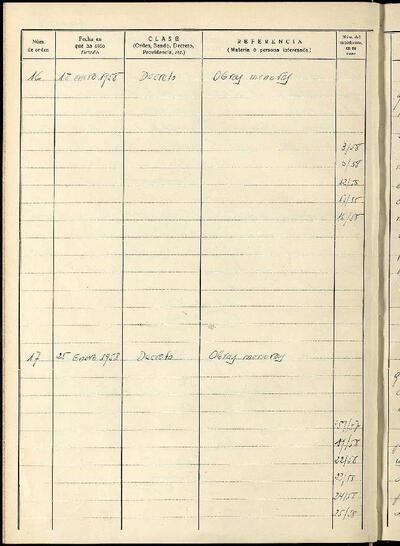 Núm. de orden
Fecha en que ha sido dictado
CLASE (Orden, Bando, Decreto, Providencia, etc.)
REFERENCIA (Materia ó persona interesada)
Núm. del
16 15 enero 1958 Decreto Obras menores
3/58
5/58
12/58
16/58
17 25 Enero 1958 Decreto Obras menores
17/58
22/58
23/58
24/58
25/58